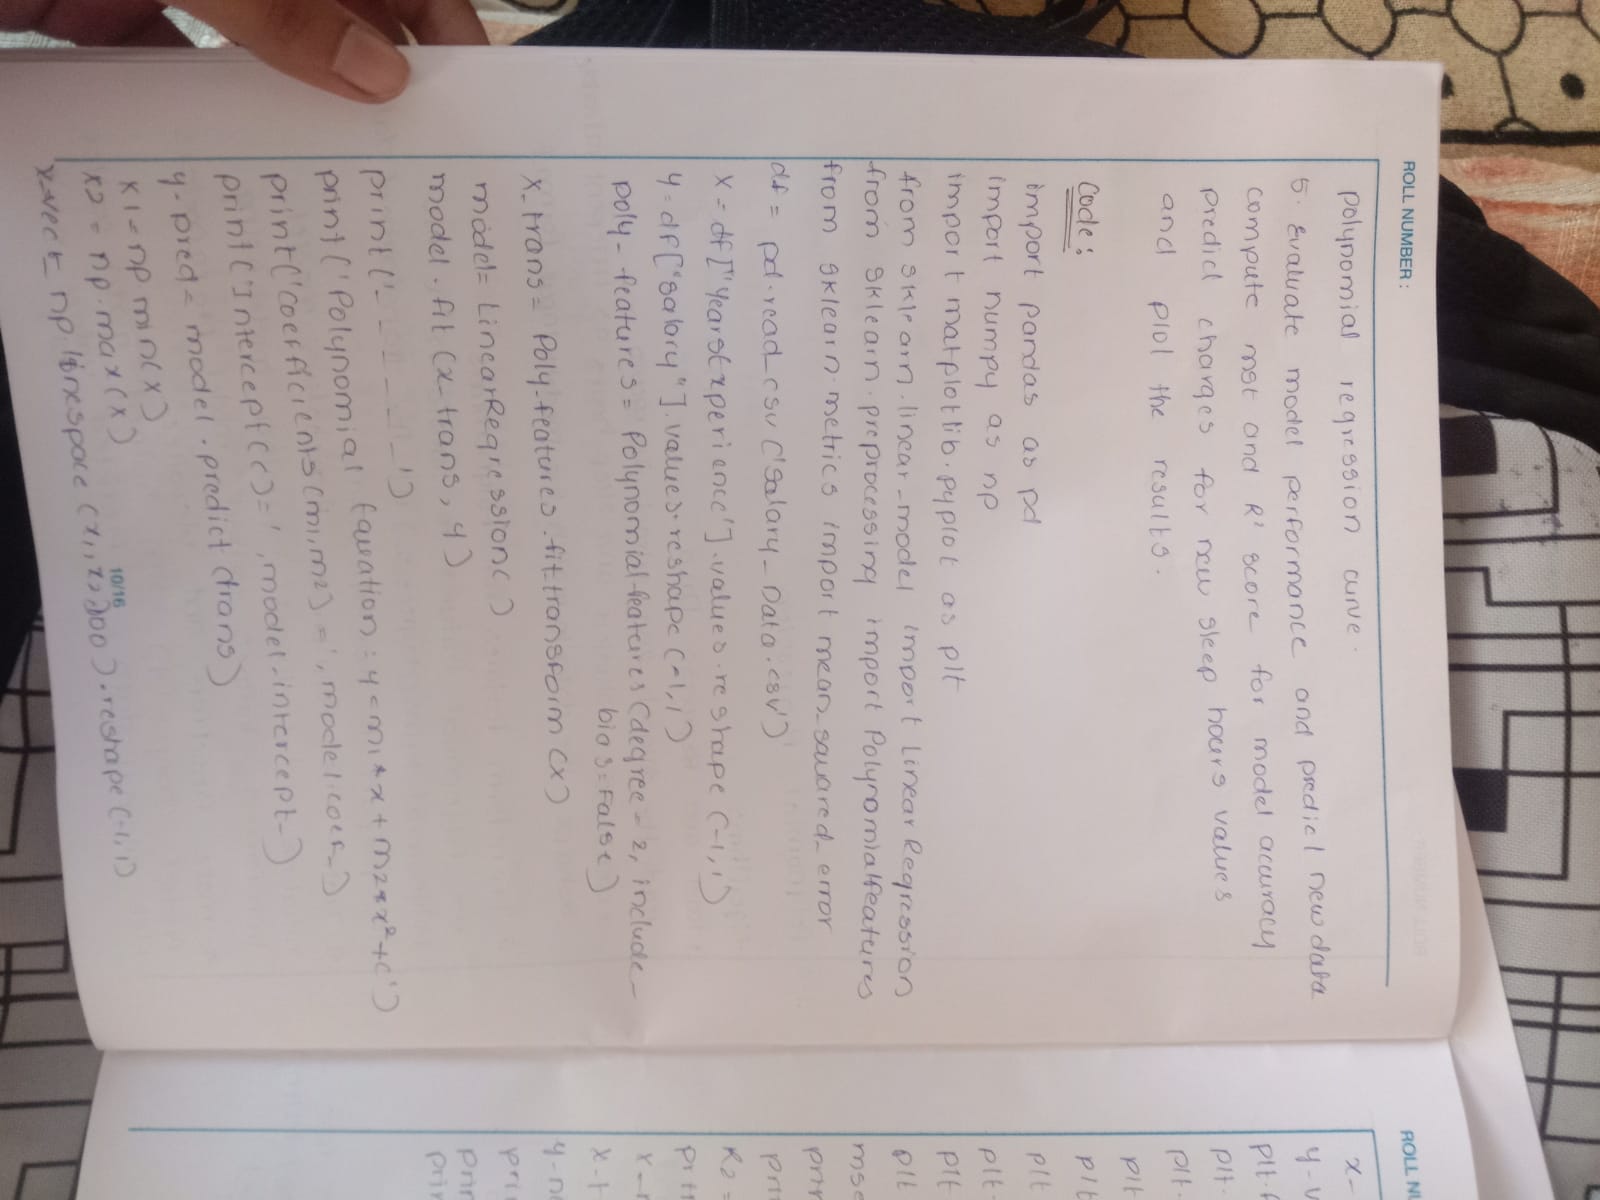 ROLL NUMBER:
polynomial regression curve.
5. Evaluate model performance and predict new data
compute mse and R² score for model accuracy
predict charges for new sleep hours values
and plot the results.
Code:
import pandas as pd
import numpy as np
import matplotlib.pyplot as plt
from sklearn.linear_model import LinearRegression
from sklearn.preprocessing import Polynomialfeatures
from sklearn.metrics import mean_squared_error
df = pd.read_csv('Salary_Data.csv')
x = df["YearsExperience'].values.reshape(-1,1)
y = df["Salary"].values.reshape(-1,1)
poly_features = Polynomialfeatures(degree=2, include_
bias=False)
x_trans = Poly_features.fit_transform(x)
model = LinearRegression()
model.fit(x_trans, y)
print('- - - - - -')
print('Polynomial Equation: y = m1*x + m2*x²+c')
print('Coefficients(m1,m2) =', model.coef_)
print('Intercept(c) =', model.intercept_)
y_pred = model.predict(trans)
x1 = np.min(x)
x2 = np.max(x)
x_vec = np.linespace(x1,x2,100).reshape(-1,1)
10/16
x-
y-v
plt.
plt.
plt.
plt
plt
plt
plt.
plt
plt
mse
prin
prin
R2 =
prin
x-
x-t
y-n
pri
prin
prin